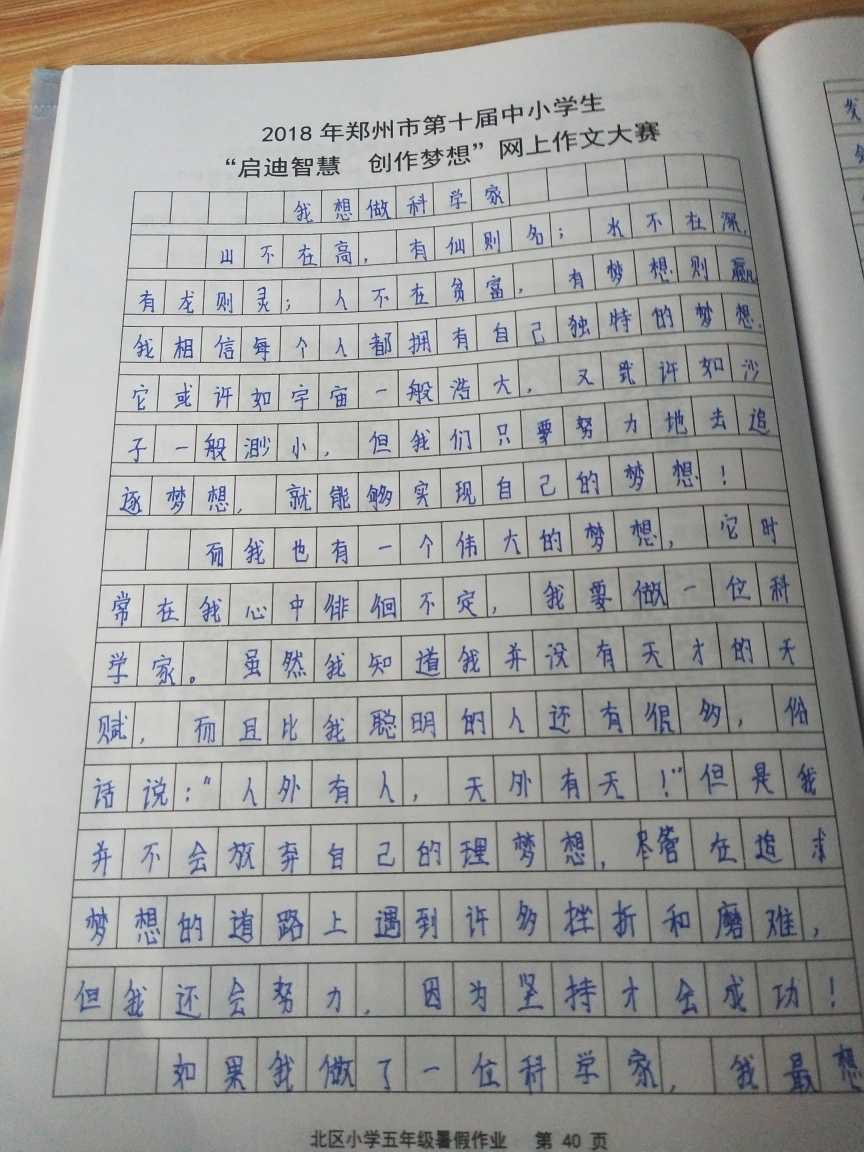 2018 年郑州市第十届中小学生
“启迪智慧 创作梦想”网上作文大赛
我想做科学家
山不在高，有仙则名；水不在深，
有龙则灵；人不在贫富，有梦想则赢
我相信每个人都拥有自己独特的梦想.
它或许如宇宙一般浩大，又或许如沙
子一般渺小，但我们只要努力地去追
逐梦想，就能够实现自己的梦想！
而我也有一个伟大的梦想，它时
常在我心中徘徊不定，我要做一位科
学家。虽然我知道我并没有天才的天
赋，而且比我聪明的人还有很多，俗
话说：“人外有人，天外有天！”但是我
并不会放弃自己的理梦想，尽管在追求
梦想的道路上遇到许多挫折和磨难，
但我还会努力，因为坚持才会成功！
如果我做了一位科学家，我最想
北区小学五年级暑假作业 第 40 页